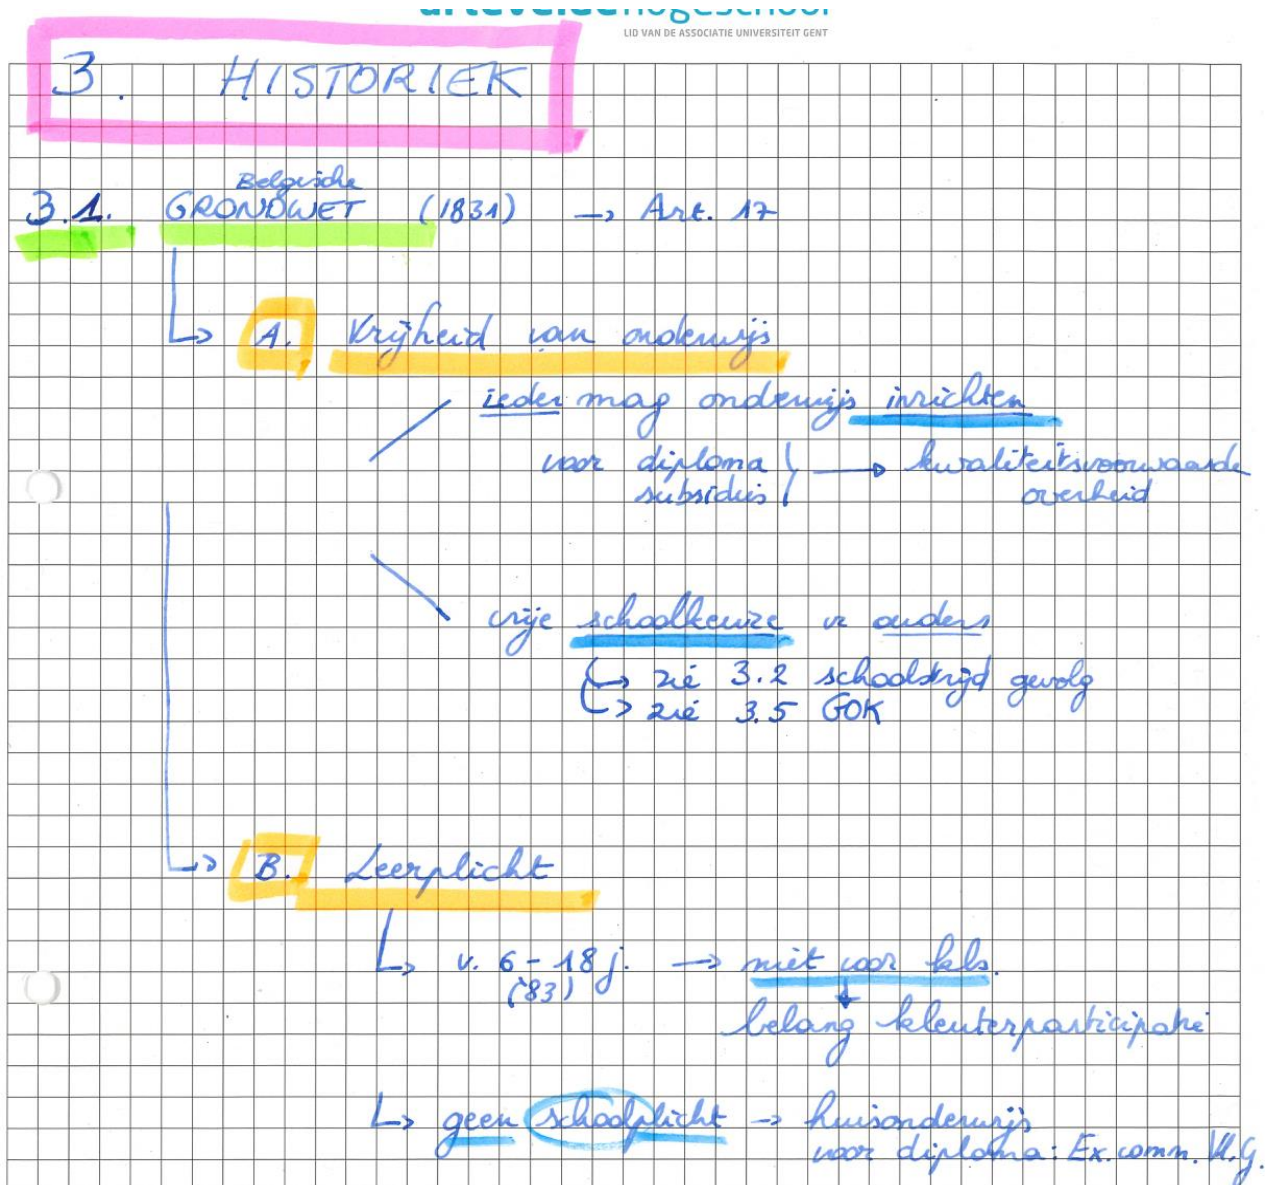 artevelde hogeschool
LID VAN DE ASSOCIATIE UNIVERSITEIT GENT
3. HISTORIEK
Belgische
3.1. GRONDWET (1831) → Art. 17
↳ A. Vrijheid van onderwijs
ieder mag onderwijs inrichten
voor diploma } → kwaliteitsvoorwaarde
subsidies overheid
vrije schoolkeuze vr ouders
↳ zie 3.2 schoolstrijd gevolg
↳ zie 3.5 GOK
↳ B. Leerplicht
↳ v. 6 - 18 j. → niet voor kls.
('83)
belang kleuterparticipatie
↳ geen schoolplicht → huisonderwijs
voor diploma: Ex. comm. Vl. G.